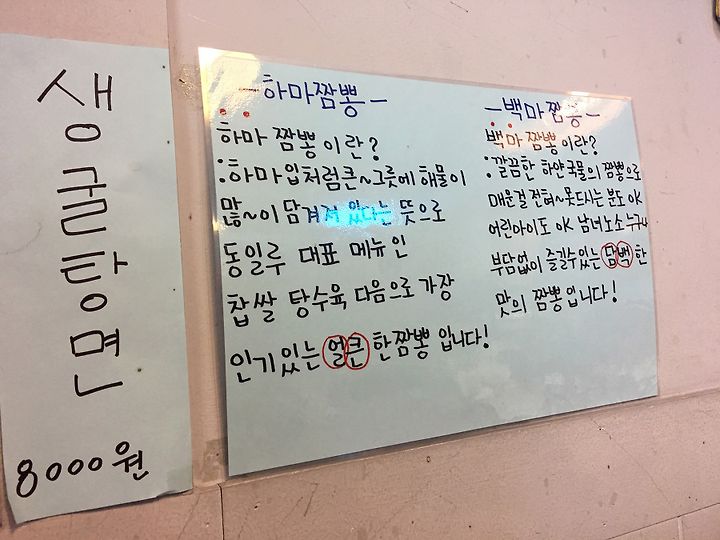 생굴탕면
8000원
-하마짬뽕-
하마 짬뽕이란?
:하마입처럼큰~그릇에 해물이
많~이 담겨져 있다는 뜻으로
동일루 대표 메뉴인
찹쌀 탕수육 다음으로 가장
인기있는 얼큰 한짬뽕 입니다!
-백마짬뽕-
백마 짬뽕이란?
:깔끔한 하얀국물의 짬뽕으로
매운걸 전혀~못드시는 분도 OK
어린아이도 OK 남녀노소 누구나
부담없이 즐길수있는 담백 한
맛의 짬뽕입니다!